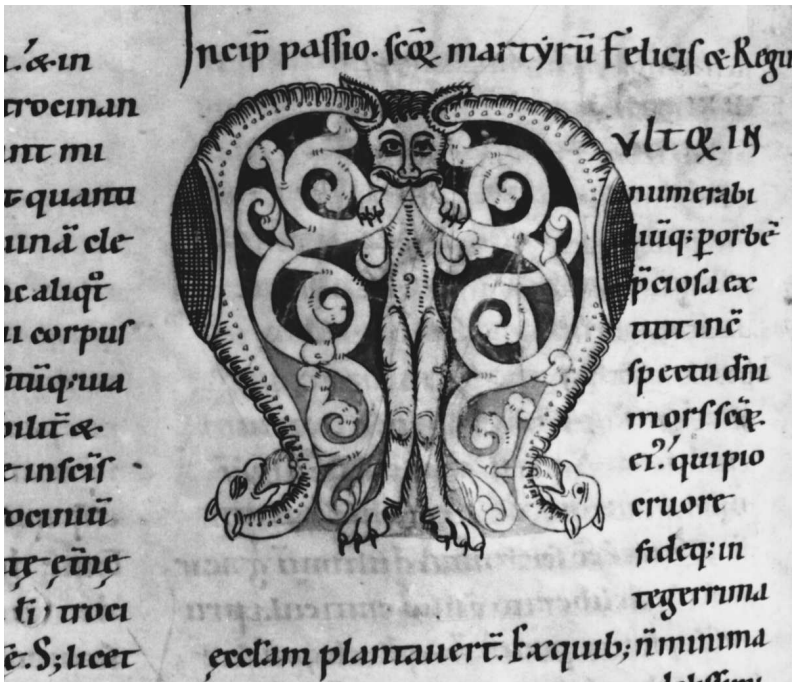 & in
trocinan
ant mi
t quanti
unā cle
ne aliqđ
u corpus
ntūq; uia
bilit̄ &
t insc̄is
rociniū
tę et̄nę
troci
S; licet
Incip̄ passio. sc̄oꝝ martẏrū Felicis & Regu
M
VLTOꝝ IN
numerabi
liūq; ꝑ orbē
p̄ciosa ex
titit inc̄
spectu dn̄i
mors sc̄oꝝ.
ei᾽. qui pio
cruore
fideq; in
tegerrima
ęccłam plantauert̄. Ex quib; n̄ minima